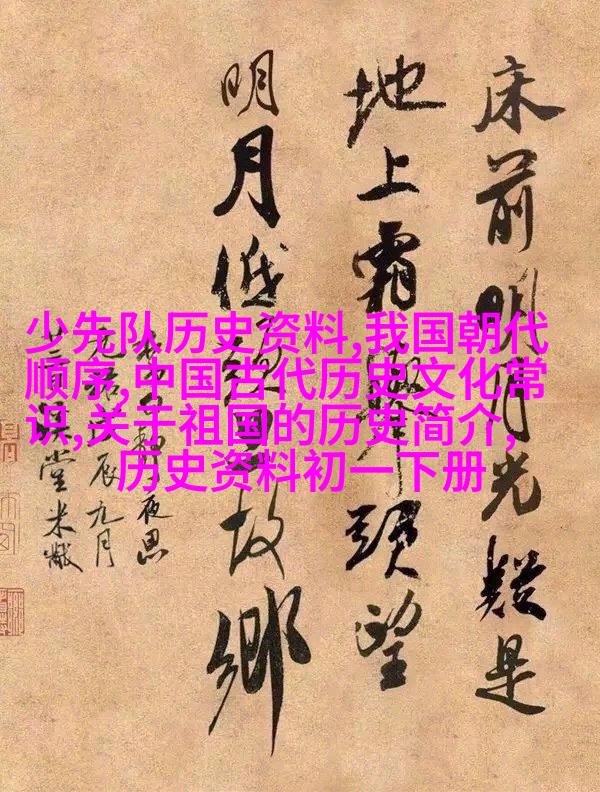 少先队历史资料,我国朝代
顺序,中国古代历史文化常
识,关于祖国的历史简介,
历史资料初一下册
床前明月光疑是
地上霜舉頭望
明月低頭思故鄉
李白靜夜思
元祐戊辰九月
堂米黻